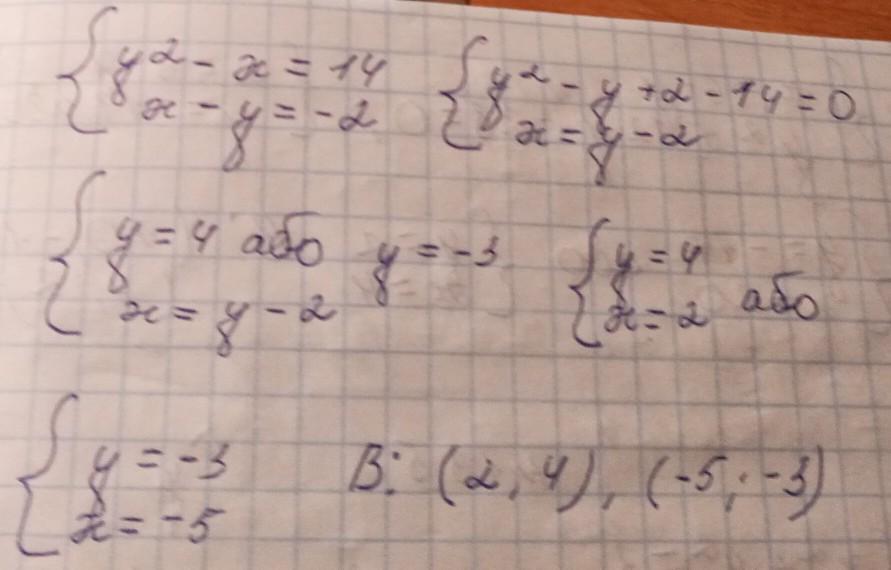 y² - x = 14
x - y = -2
y² - y + 2 - 14 = 0
x = y - 2
y = 4 або y = -3
x = y - 2
y = 4
x = 2 або
y = -3
x = -5
В: (2, 4), (-5; -3)